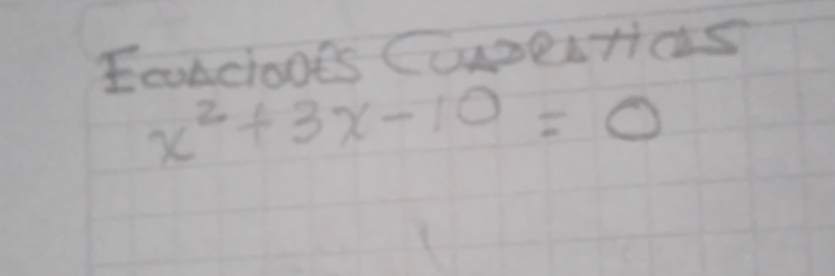 Ecuaciones Cuadraticas
x² + 3x - 10 = 0